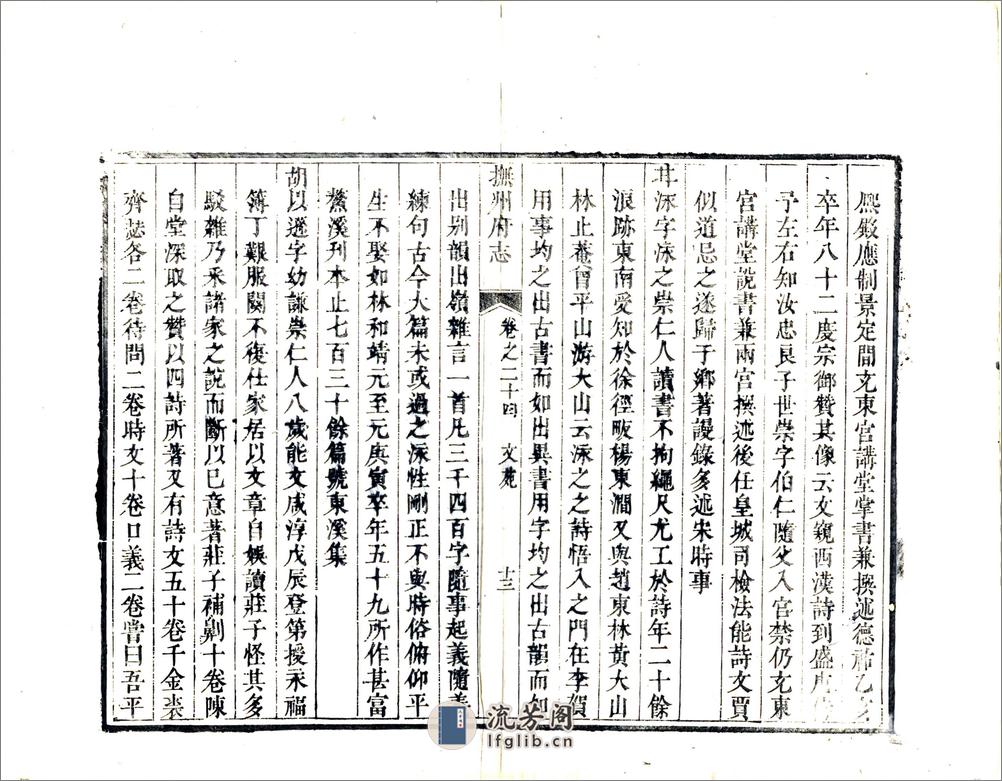 熙殿應制景定間充東宮講堂掌書兼撰述德祐乙亥
卒年八十二度宗御贊其像云文窺西漢詩到盛唐
予左右知汝忠良子世崇字伯仁隨父入宮禁仍充東
宮講堂說書兼兩宮撰述後任皇城司檢法能詩文賈
似道忌之遂歸于鄉著謾錄多述宋時事
泳字泳之崇仁人讀書不拘繩尺尤工於詩年二十餘
浪跡東南愛知於徐徑畈楊東澗又與趙東林黃大山
林止菴曾平山游大山云泳之之詩悟入之門在李賀
用事均之出古書而如出異書用字均之出古韻而如
撫州府志
卷之二十四
文苑
十三
出别韻出嶺雜言一首凡三千四百字隨事起義隨義
練句古今大篇未或過之泳性剛正不與時俗俯仰平
生不娶如林和靖元至元庚寅卒年五十九所作甚富
鰲溪刊本止七百三十餘篇號東溪集
胡以遜字幼謙崇仁人八歲能文咸淳戊辰登第授永福
簿丁艱服闋不復仕家居以文章自娛讀莊子怪其多
駁雜乃采諸家之說而斷以已意著莊子補劓十卷陳
自堂深取之贊以四詩所著又有詩文五十卷千金裘
齊誌各二卷待問二卷時文十卷口義二卷嘗曰吾平
流芳阁
lfglib.cn